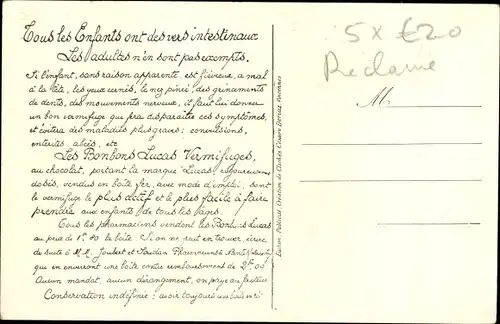 Tous les Enfants ont des vers intestinaux
Les adultes n'en sont pas exempts.
Si l'enfant, sans raison apparente, est fiévreux, a mal
à la tête, les yeux cernés, le nez pincé, des grincements
de dents, des mouvements nerveux, il faut lui donner
un bon vermifuge qui fera disparaître ces symptômes,
et évitera des maladies plus graves: convulsions,
entérites, abcès, etc
Les Bonbons Lucas Vermifuges,
au chocolat, portant la marque Lucas, rigoureusement
dosés, vendus en boîte fer, avec mode d'emploi, sont
le vermifuge le plus actif et le plus facile à faire
prendre aux enfants de tous les âges.
Tous les pharmaciens vendent les Bonbons Lucas
au prix de la boîte. Si on ne peut en trouver, écrire
de suite à M. Joubert et Jourdan Pharmaciens à
qui en enverront une boîte contre remboursement de
Aucun mandat, aucun dérangement, on paye au facteur
Conservation indéfinie: avoir toujours une boîte ici
Edition
5 x £20
Réclame
M